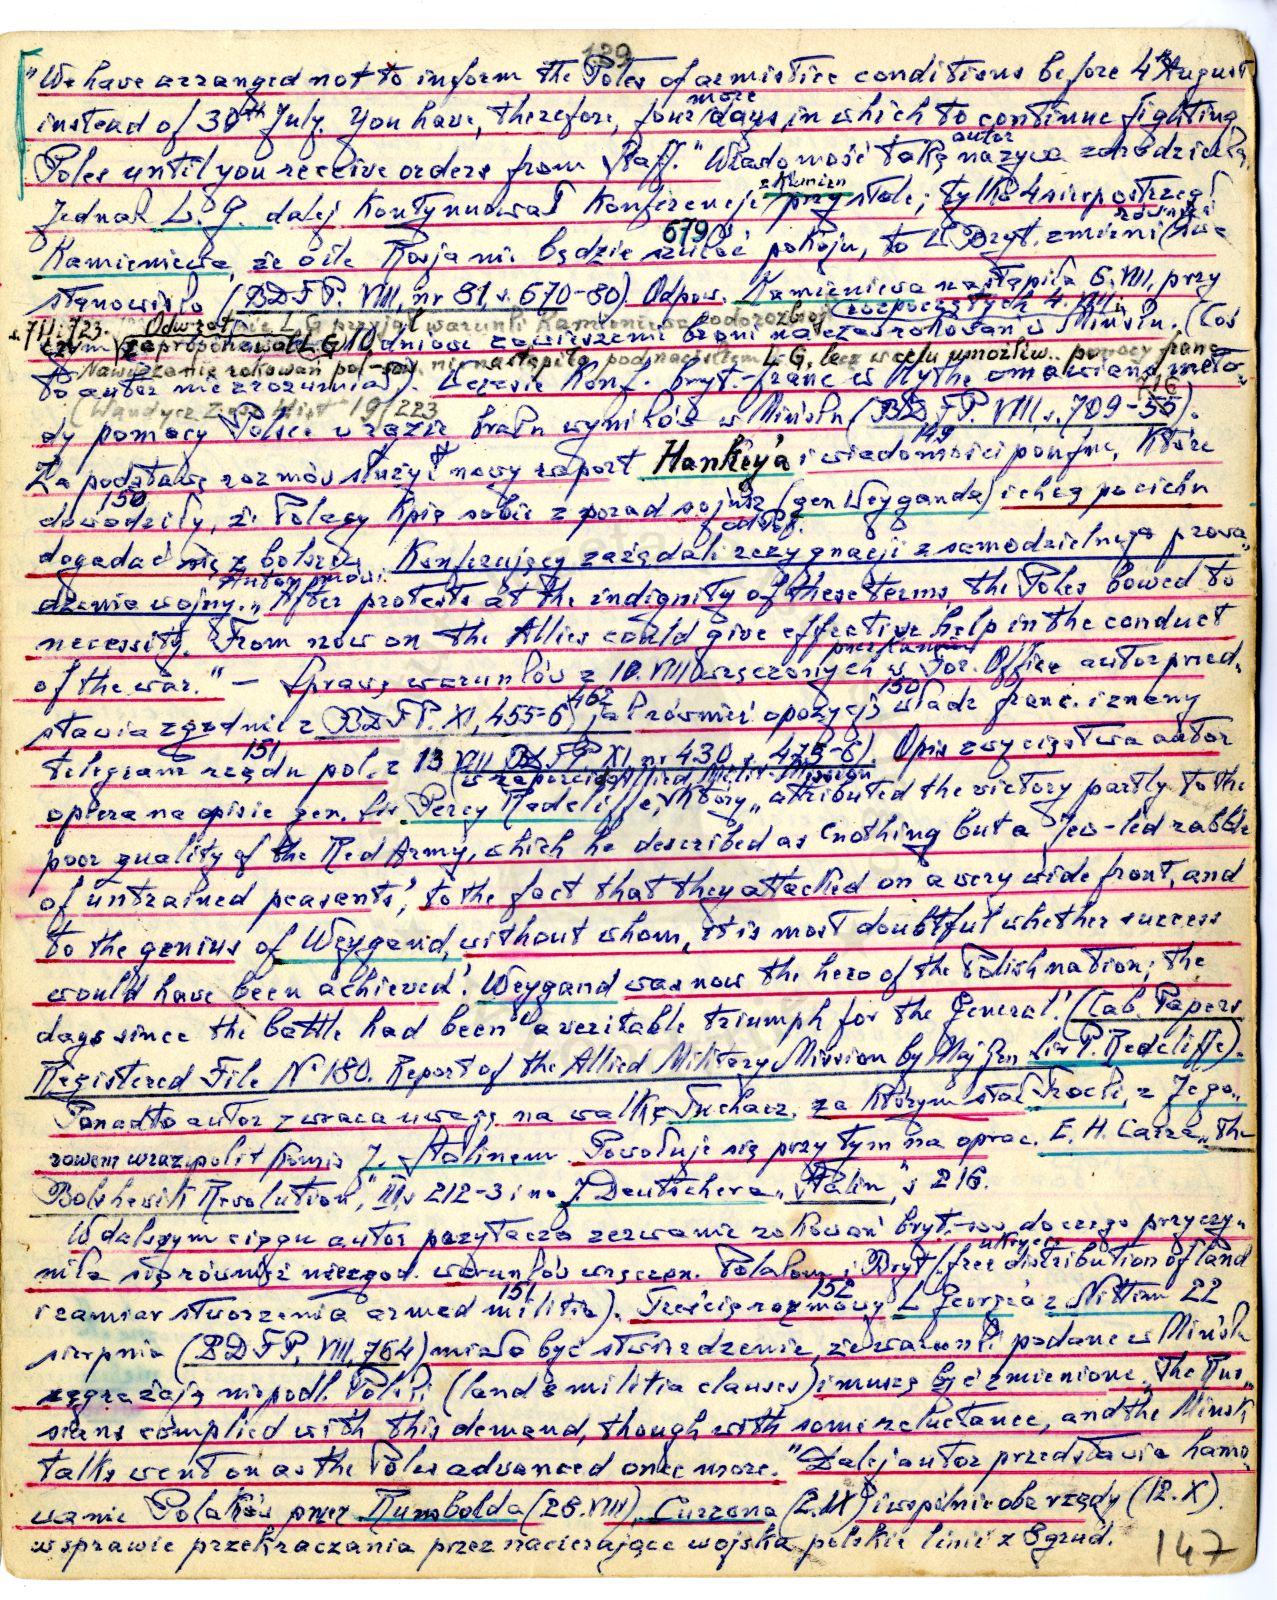 139
"We have arranged not to inform the Poles of armistice conditions before 4th August
instead of 30th July. You have, therefore, four more days, in which to continue fighting
Poles until you receive orders from Staff." Wiadomość taką autor nazywa zdradziecką,
Jednak L. G. dalej kontynuował konferencje z Kamien przy stole; tylko 4 sierp ostrzegł
Kamieniewa, że o ile Rosja nie będzie szukać pokoju, to W Bryt. zmieni również swe
679
stanowisko (BDFP. VIII, nr 81, s. 670-80). Odpow. Kamieniewa nastąpiła 6. VIII, przy
s. 711. 723. Odwrotnie L G przyjął warunki Kamieniewa podo rozbroj. rozpoczętych 4. VIII
czym zaproponował LG 10 dniowe zawieszenie broni na czas rokowań w Mińsku. (Coś
Nawiązanie rokowań pol-sow. nie nastąpiło pod naciskiem L G, lecz w celu umożliw. pomocy franc
to autor nie zrozumiał). Wczesie Konf. bryt.-franc w Hythe omawiano meto-
(Wandycz Zesz Hist 19/223
716
dy pomocy Polsce w razie braku wyników w Mińsku (BDFP. VIII, s. 709-56).
149
Za podstawę rozmów służył nowy raport Hankey'a i wiadomości poufne, które
150
dowodziły, że Polacy kpią sobie z porad sojusz (gen Weyganda) i chcą po cichu
dogadać się z bolszew. Konferujący zażądali rezygnacji z samodzielnego prowa-
Autor mówi:
dzenia wojny. "After protests at the indignity of these terms, the Poles bowed to
necessity. From now on the Allies could give effective help in the conduct
of the war." — Sprawę warunków z 10. VIII wręczonych w For. Office autor przed-
150
stawia zgodnie z BDFP. XI, 455-6, 462 jak również opozycję władz franc. i znany
151
telegram rządu pol. z 13 VIII BDFP XI, nr 430, s. 475-6). Opis zwycięstwa autor
(w raporcie Allied Milit. Mission
opiera na opisie gen. Sir Percy Radcliffe, który "attributed the victory partly to the
poor quality of the Red Army, which he described as 'nothing but a Jew-led rabble
of untrained peasants', to the fact that they attacked on a very wide front, and
to the genius of Weygand, without whom, it is most doubtful whether success
would have been achieved'. Weygand was now the hero of the Polish nation; the
days since the battle had been 'a veritable triumph for the General.' (Cab. Papers
Registered File No 180. Report of the Allied Military Mission by Maj Gen Sir P. Redcliffe).
Ponadto autor zwraca uwagę na walkę Tuchacz. za którym stał Trocki, z Jego-
rowem wraz polit komis J. Stalinem. Powołuje się przy tym na oprac. E. H. Carra "The
Bolshevik Revolution", III, s 212-3 i na J Deutschera "Stalin", s 216.
W dalszym ciągu autor przytacza zerwanie rokowań bryt.-sow, do czego przyczy-
niła się również niezgod. warunków wręczon. Polakom i Bryt (ukrycie free distribution of land
151 152
i zamiar stworzenia armed militia). Treścią rozmowy L George'a z Nittim 22
sierpnia (BDFP, VIII, 764) miało być stwierdzenie, że warunki podane w Mińsku
zagrażają niepodl. Polski (land & militia clauses) i muszą być zmienione. "The Rus-
sians complied with this demand, though with some reluctance, and the Minsk
talks went on as the Poles advanced once more." Dalej autor przedstawia hamo-
wanie Polaków przez Rumbolda (28. VIII), Curzona (2. IX) i wspólnie oba rządy (12. X).
w sprawie przekraczania przez nacierające wojska polskie linii z 8 grud.
147